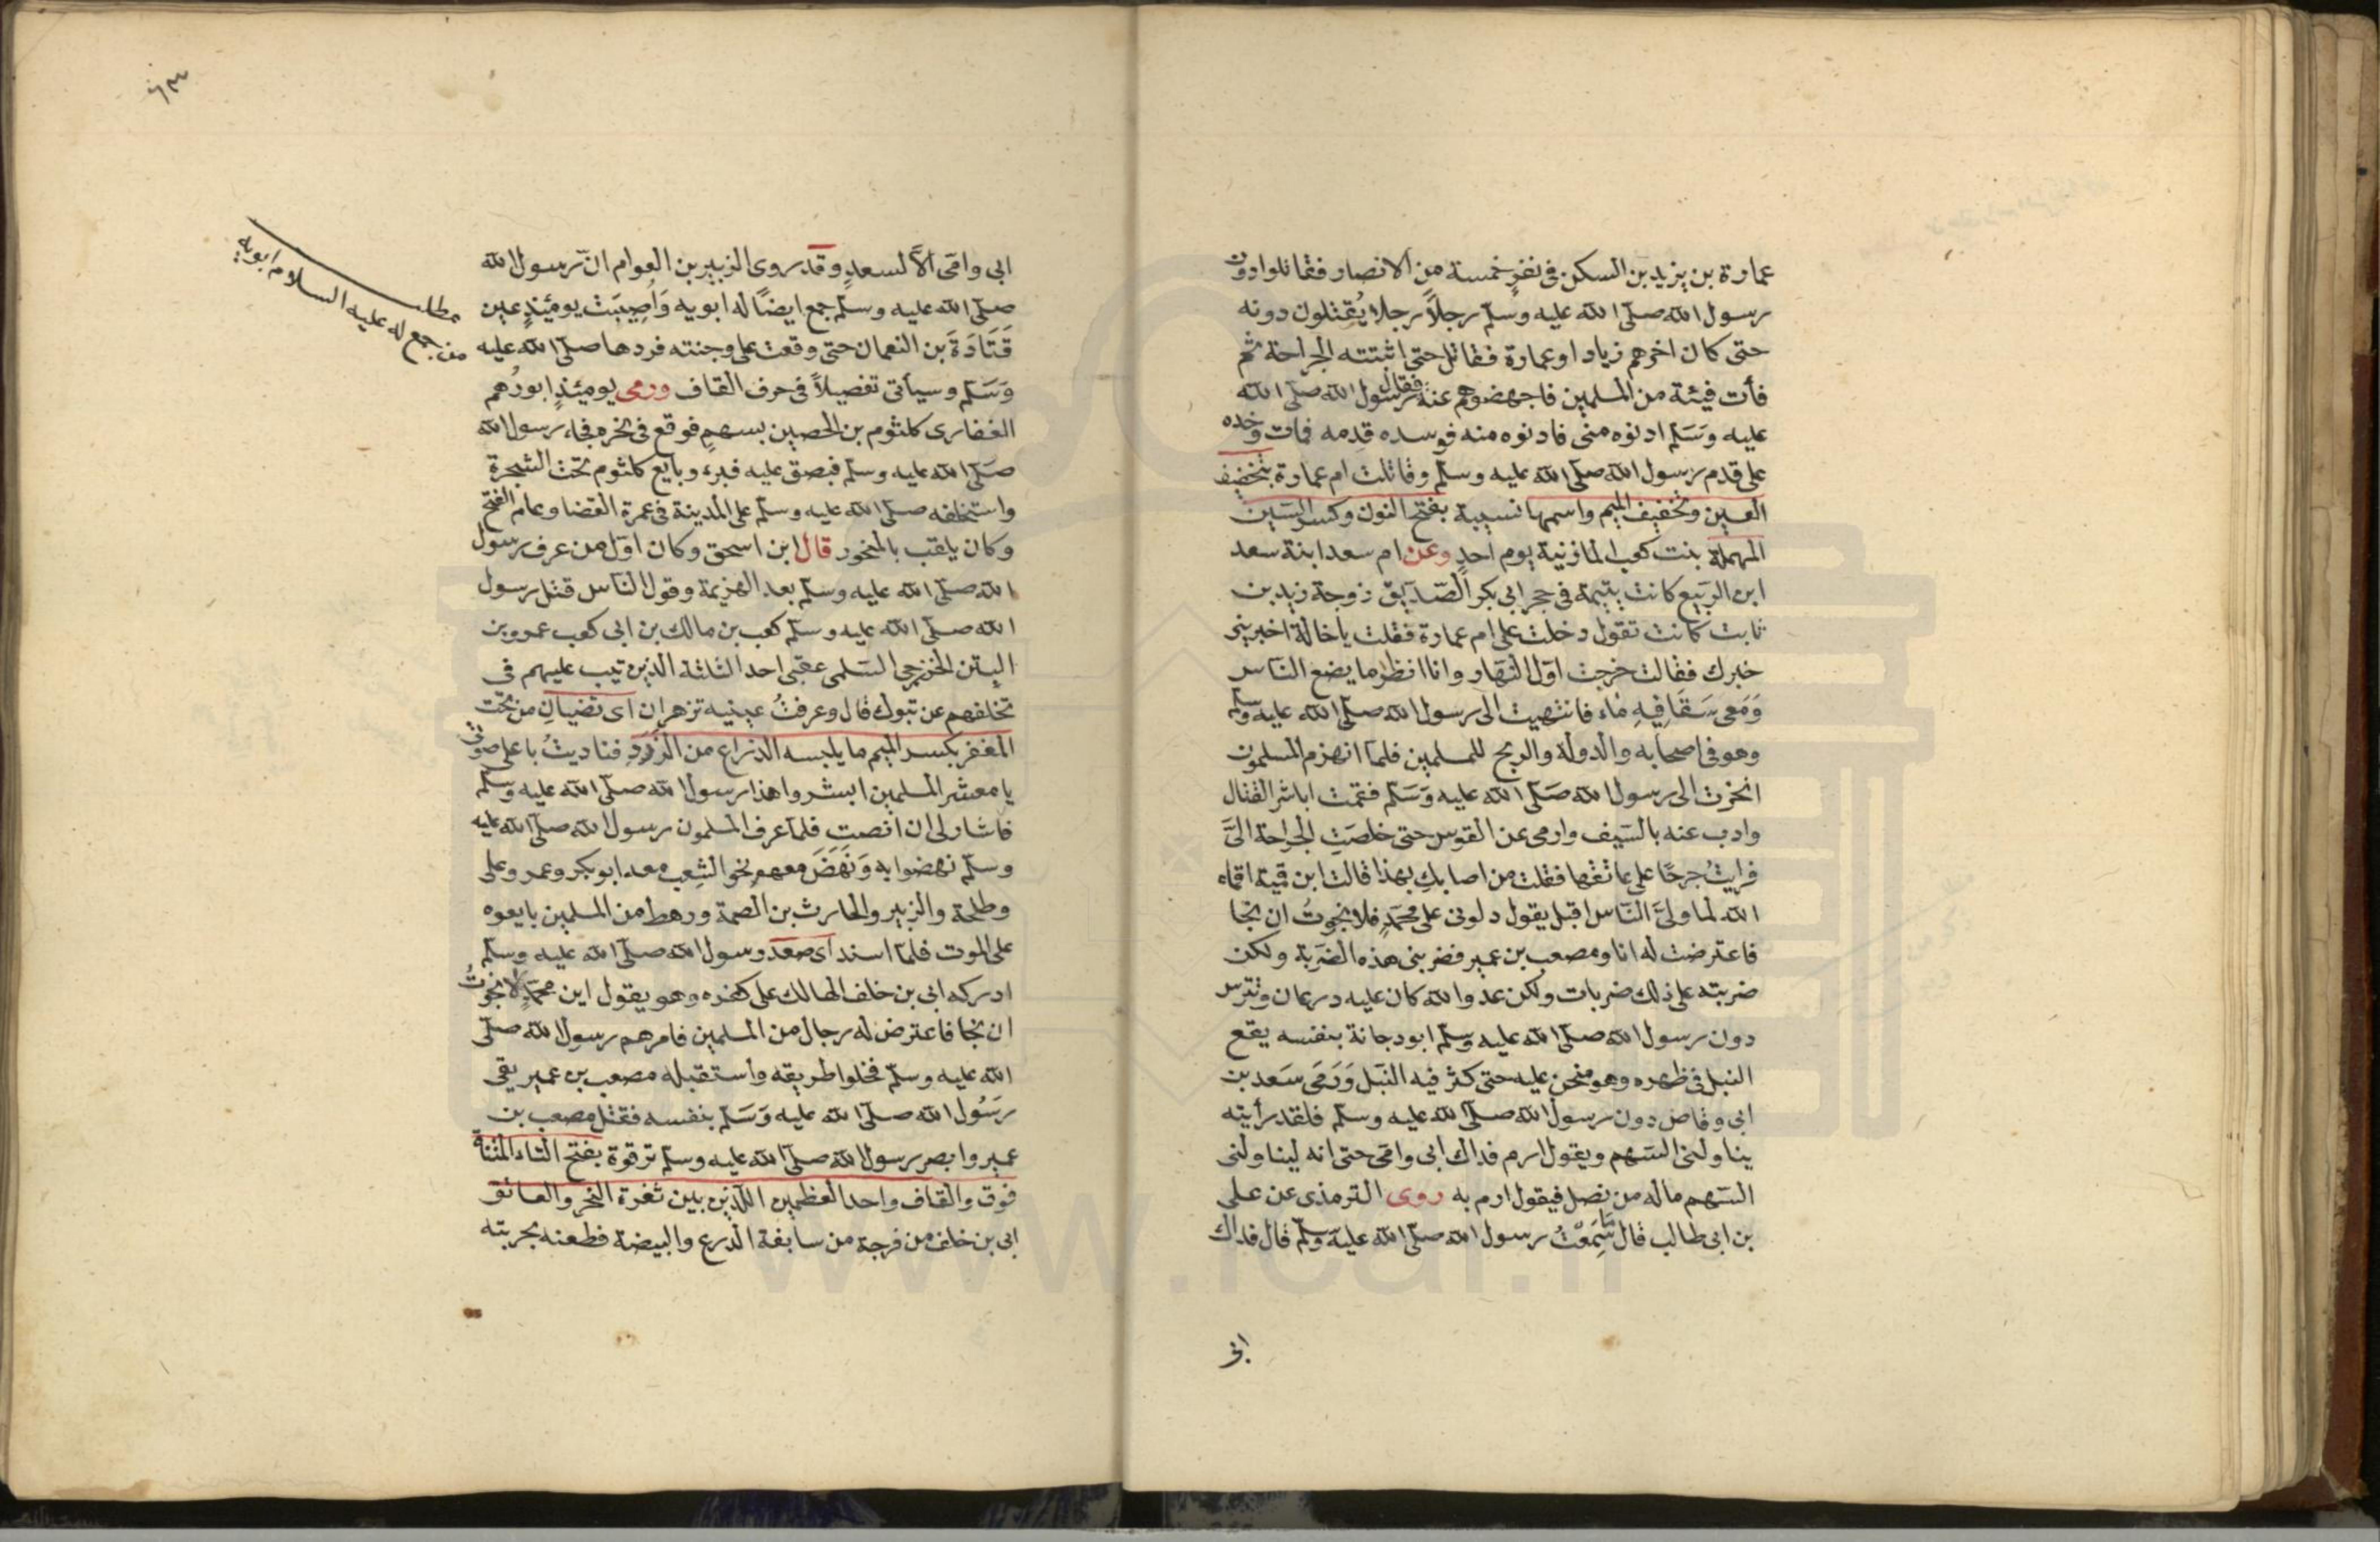 عمارة بن يزيد بن السكن فى نفر خمسة من الانصار فقاتلوا دون
رسول الله صلّى الله عليه وسلّم رجلاً رجلا يُقتلون دونه
حتى كان اخرهم زياد او عمارة فقاتل حتى اثبتته الجراحة ثم
فأت فيئة من المسلمين فاجهضوهم عنه فقال رسول الله صلّى الله
عليه وسَلّم ادنوه منى فادنوه منه فوسده قدمه فمات وخده
على قدم رسول الله صلّى الله عليه وسلّم وقاتلت ام عمارة بتخفيف
العين وتخفيف الميم واسمها نسيبة بفتح النون وكسر السّين
المهملة بنت كعب المازنية يوم احدٍ وعن ام سعد ابنة سعد
ابن الربيع كانت يتيمة فى حجر ابى بكر الصّدّيق زوجة زيد بن
ثابت كانت تقول دخلت على ام عمارة فقلت ياخالة اخبرينى
خبرك فقالت خرجت اوّل النّهار وانا انظر ما يضع النّاس
وَمَعى سَقَا فِيهِ مَاء فانتهيت الى رسول الله صلّى الله عليه وسلّم
وهو فى اصحابه والدولة والريح للمسلمين فلمّا انهزم المسلمون
انحزت الى رسول الله صَلّى الله عليه وَسَلّم فقمت اباشر القتال
وادب عنه بالسّيف وارمى عن القوس حتى خلصَتِ الجراحة الىَّ
فرايتُ جرحًا على عاتقها فقلت من اصابكِ بهذا قالت ابن قمية اقماه
الله لما ولىَّ النّاس اقبل يقول دلونى على محمّدٍ فلا نجوتُ ان نجا
فاعترضت له انا ومصعب بن عمير فضربنى هذه الضَربة ولكن
ضربته على ذلك ضربات ولكن عدو الله كان عليه درعان وتترس
دون رسول الله صلّى الله عليه وسلّم ابو دجانة بنفسه يقع
النبل فى ظهره وهو منحن عليه حتى كثر فيه النَبل وَرَمَى سَعد بن
ابى وقاص دون رسول الله صلّى الله عليه وسلّم فلقد رأيته
يناولنى السّهم ويقول ارم فداك ابى وامّى حتى انه ليناولنى
السّهم ماله من نصل فيقول ارم به روى الترمذى عن على
بن ابى طالب قال ما سَمِعْتُ رسول الله صلّى الله عليه وسلّم قال فداك
ابى
٦٣
ابى وامّى الّا لسعدٍ وقد روى الزبير بن العوام انّ رسول الله
صلّى الله عليه وسلّم جمع ايضًا له ابويه وَأُصِيبَتْ يومئذٍ عين
قَتَادَةَ بن النعمان حتى وقعت على وجنته فردها صلّى الله عليه
وَسَلّم وسيأتى تفصيلاً فى حرف القاف ورمى يومئذٍ ابورُهم
الغفارى كلثوم بن الحصين بسهمٍ فوقع فى نحره فجاء رسول الله
صَلّى الله عليه وسلّم فبصق عليه فبرء وبايع كلثوم تحت الشجرة
واستخلفه صلّى الله عليه وسلّم على المدينة فى عمرة القضا وعام الفتح
وكان يلقب بالمنحور قال ابن اسحق وكان اوّل من عرف رسول
الله صلّى الله عليه وسلّم بعد الهزيمة وقول النّاس قتل رسول
الله صلّى الله عليه وسلّم كعب بن مالك بن ابى كعب عمرو بن
القين الخزرجى السّلمى عقبى احد الثلثة الذين تيب عليهم فى
تخلفهم عن تبوك قال وعرفتُ عينيه تزهران اى تضيانِ من تحت
المغفر بكسر الميم ما يلبسه الذراع من الزَرَدِ فناديتُ باعلى صوتى
يا معشر المسلمين ابشروا هذا رسول الله صلّى الله عليه وسلّم
فاشار لى ان انصت فلمّا عرف المسلمون رسول الله صلّى الله عليه
وسلّم نهضوا به وَنَهَضَ معهم نحو الشِعب معه ابو بكر وعمر وعلى
وطلحة والزبير والحارث بن الصمة ورهط من المسلمين بايعوه
على الموت فلمّا اسند اى صعد رسول الله صلّى الله عليه وسلّم
ادركه ابى بن خلف الهالك على كفره وهو يقول اين محمّد لا نجوتُ
ان نجا فاعترض له رجال من المسلمين فامرهم رسول الله صلّى
الله عليه وسلّم فخلوا طريقه واستقبله مصعب بن عمير يقى
رسُول الله صلّى الله عليه وَسَلّم بنفسه فقتل مصعب بن
عمير وابصر رسول الله صلّى الله عليه وسلّم ترقوة بفتح التاء المثناة
فوق والقاف واحد العظمين اللّذين بين ثغرة النحر والعاتق
ابى بن خلف من فرجة من سابغة الدّرع والبيضة فطعنه بحربته
مطلب
من جمع له عليه السلام ابويه
www.ical.ir